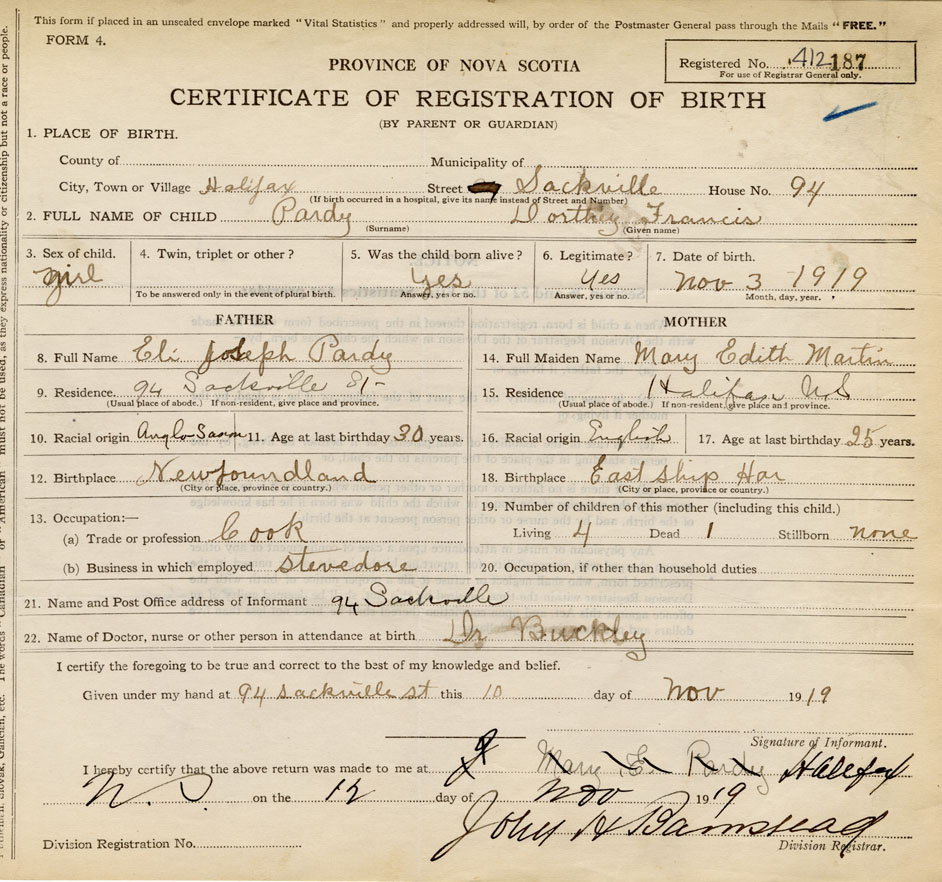 This form if placed in an unsealed envelope marked "Vital Statistics" and properly addressed will, by order of the Postmaster General pass through the Mails "FREE."
FORM 4.
Registered No. 412187
For use of Registrar General only.
PROVINCE OF NOVA SCOTIA
CERTIFICATE OF REGISTRATION OF BIRTH
(BY PARENT OR GUARDIAN)
1. PLACE OF BIRTH.
County of Municipality of
City, Town or Village Halifax Street Sackville House No. 94
(If birth occurred in a hospital, give its name instead of Street and Number)
2. FULL NAME OF CHILD Pardy Dorthy Francis
(Surname) (Given name)
3. Sex of child. 4. Twin, triplet or other? 5. Was the child born alive? 6. Legitimate? 7. Date of birth.
girl Yes Yes Nov 3 1919
To be answered only in the event of plural birth. Answer, yes or no. Answer, yes or no. Month, day, year.
FATHER MOTHER
8. Full Name Eli Joseph Pardy 14. Full Maiden Name Mary Edith Martin
9. Residence. 94 Sackville St- 15. Residence Halifax N S
(Usual place of abode.) If non-resident, give place and province. (Usual place of abode.) If non-resident, give place and province.
10. Racial origin Anglo Saxon 11. Age at last birthday 30 years. 16. Racial origin English 17. Age at last birthday 25 years.
12. Birthplace Newfoundland 18. Birthplace East ship Har
(City or place, province or country.) (City or place, province or country.)
13. Occupation:— 19. Number of children of this mother (including this child.)
(a) Trade or profession Cook Living 4 Dead 1 Stillborn none
(b) Business in which employed stevedore 20. Occupation, if other than household duties
21. Name and Post Office address of Informant 94 Sackville
22. Name of Doctor, nurse or other person in attendance at birth Dr Buckley
I certify the foregoing to be true and correct to the best of my knowledge and belief.
Given under my hand at 94 Sackville st this 10 day of Nov 1919
Signature of Informant.
Mary E. Pardy
I hereby certify that the above return was made to me at Halifax
N.S. on the 12 day of Nov 1919
John H Barnstead
Division Registration No. Division Registrar.